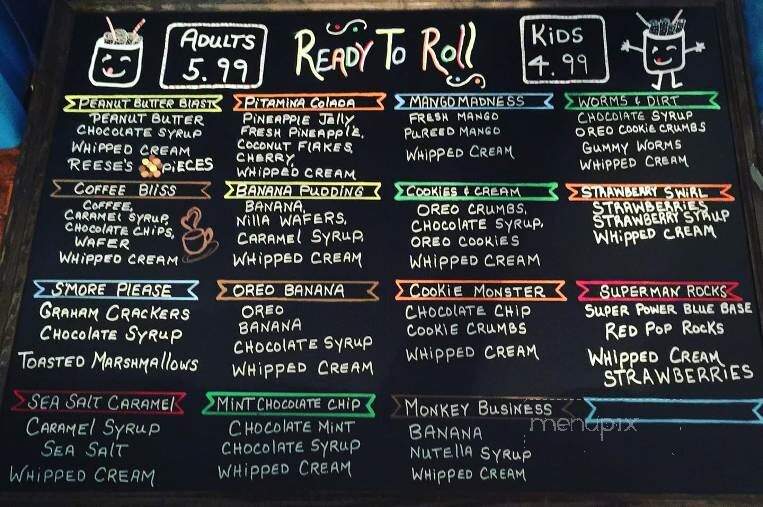 ADULTS
5.99
READY TO ROLL
KIDS
4.99
PEANUT BUTTER BLAST
PEANUT BUTTER
CHOCOLATE SYRUP
WHIPPED CREAM
REESE'S PIECES
PITAMINA COLADA
PINEAPPLE JELLY
FRESH PINEAPPLE,
COCONUT FLAKES,
CHERRY,
WHIPPED CREAM
MANGO MADNESS
FRESH MANGO
PUREED MANGO
WHIPPED CREAM
WORMS & DIRT
CHOCOLATE SYRUP
OREO COOKIE CRUMBS
GUMMY WORMS
WHIPPED CREAM
COFFEE BLISS
COFFEE,
CARAMEL SYRUP,
CHOCOLATE CHIPS,
WAFER
WHIPPED CREAM
BANANA PUDDING
BANANA,
NILLA WAFERS,
CARAMEL SYRUP,
WHIPPED CREAM
COOKIES & CREAM
OREO CRUMBS,
CHOCOLATE SYRUP,
OREO COOKIES
WHIPPED CREAM
STRAWBEARY SWIRL
STRAWBERRIES
STRAWBERRY SYRUP
WHIPPED CREAM
S'MORE PLEASE
GRAHAM CRACKERS
CHOCOLATE SYRUP
TOASTED MARSHMALLOWS
OREO BANANA
OREO
BANANA
CHOCOLATE SYRUP
WHIPPED CREAM
COOKIE MONSTER
CHOCOLATE CHIP
COOKIE CRUMBS
WHIPPED CREAM
SUPERMAN ROCKS
SUPER POWER BLUE BASE
RED POP ROCKS
WHIPPED CREAM
STRAWBERRIES
SEA SALT CARAMEL
CARAMEL SYRUP
SEA SALT
WHIPPED CREAM
MINT CHOCOLATE CHIP
CHOCOLATE MINT
CHOCOLATE SYRUP
WHIPPED CREAM
MONKEY BUSINESS
BANANA
NUTELLA SYRUP
WHIPPED CREAM
menupix